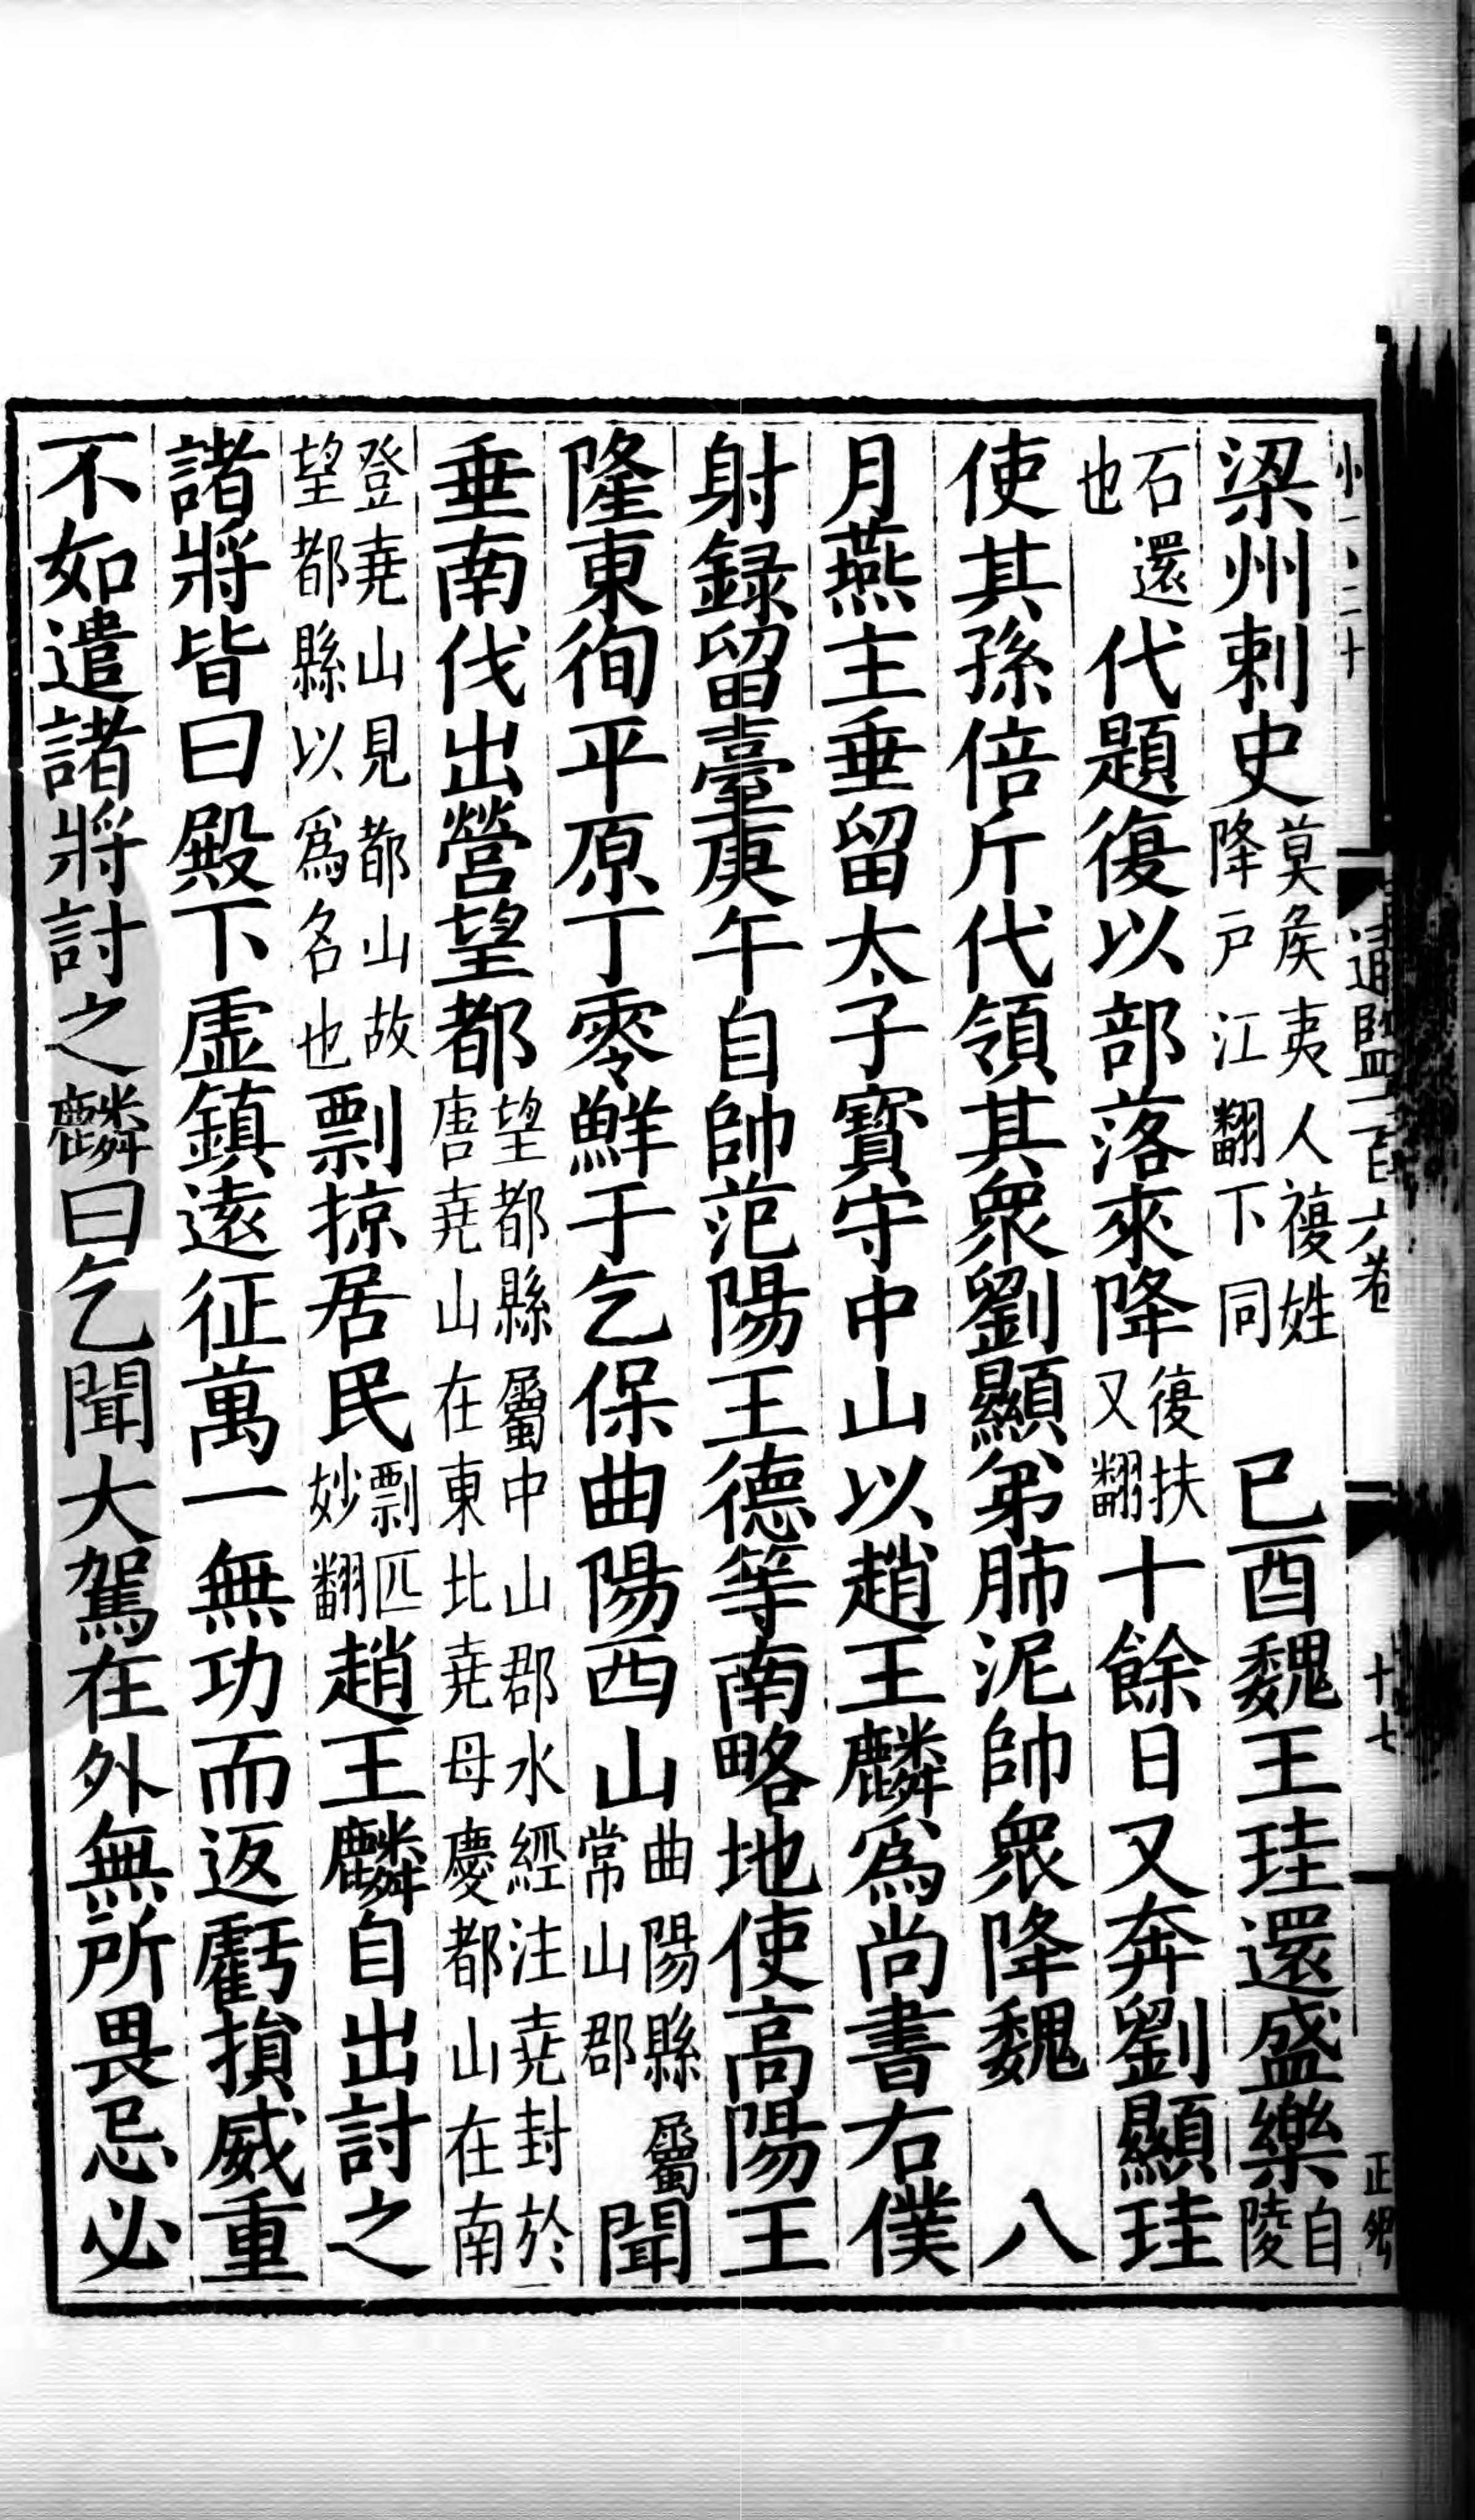 梁州刺史莫矦夷人複姓降戸江翻下同　已酉魏王珪還盛樂自陵
石還也代題復以部落來降復扶又翻十餘日又奔劉顯珪
使其孫倍斤代領其衆劉顯弟肺泥帥衆降魏　八
月燕主垂留太子寳守中山以趙王麟爲尚書右僕
射録留臺庚午自帥范陽王德等南略地使高陽王
隆東徇平原丁零鮮于乞保曲陽西山曲陽縣屬常山郡聞
垂南伐出營望都望都縣屬中山郡水經注堯封於唐堯山在東北堯母慶都山在南
登堯山見都山故望都縣以爲名也剽掠居民剽匹妙翻趙王麟自出討之
諸將皆曰殿下虛鎮逺征萬一無功而返虧損威重
不如遣諸將討之麟曰乞聞大駕在外無所畏忌必
通鑑一百六卷
十七